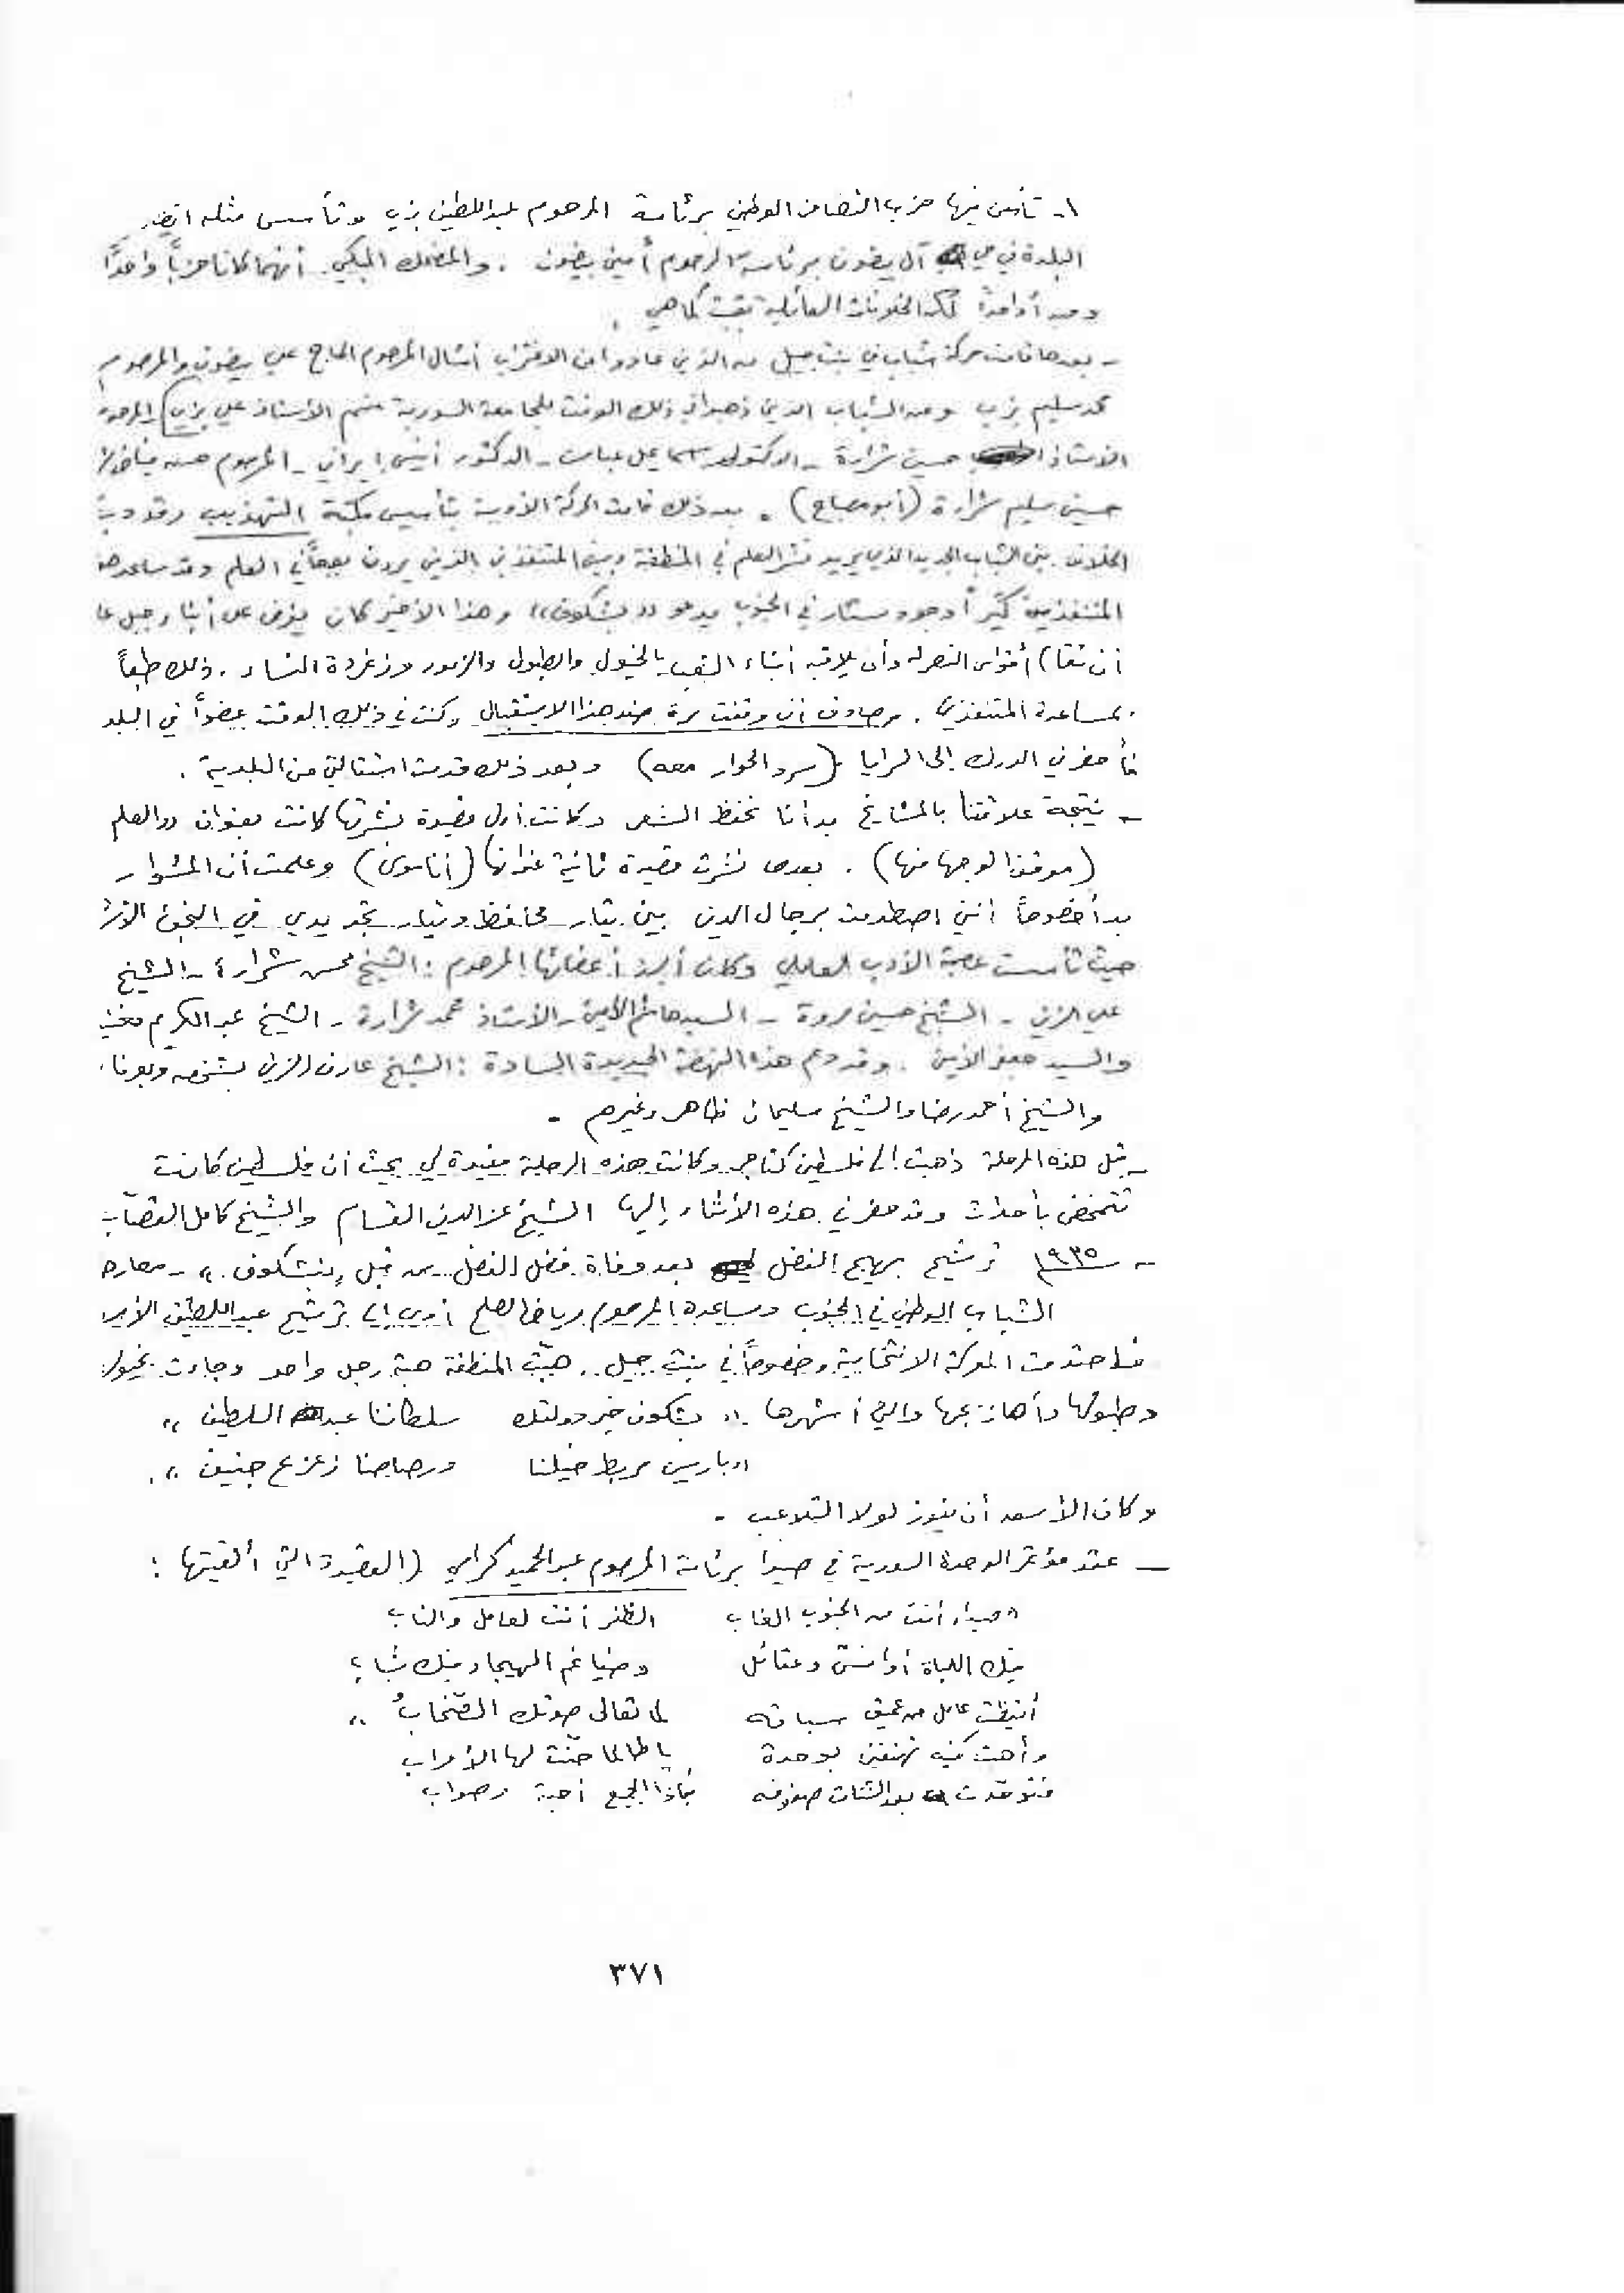 ١- تأسس فيها حزب التضامن الوطني برئاسة المرحوم عبداللطيف بزي وتأسس مثله
البلدة في حي آل بيضون برئاسة المرحوم أمين بيضون . والمضحك المبكي أنهما كانا حزباً واحداً
لكن الخلافات العائلية بقيت كما هي .
- بعدها قامت حركة شباب في بنت جبيل من الذين عادوا من الاغتراب أمثال المرحوم الحاج علي بيضون والمرحوم
محمد سليم بزي ومن الشباب الذين ذهبوا في ذلك الوقت للجامعة السورية منهم الأستاذ علي بزي) المرحوم
الاستاذ حسين شرارة - الدكتور إسماعيل عباس - الدكتور أنيس إيراني - المرحوم حسن
حسين سليم شرارة (أبو مصباح) . بعد ذلك قامت الحركة الأدبية بتأسيس مكتبة التهذيب وقد دبّ
الخلاف بين الشباب الجديد الذي يريد نشر العلم في المنطقة وبين المتنفذين الذين يرون العلم وقد ساعد هذه
المتنفذين كثيراً وجود مستشار في الجنوب يدعو «بشكوف» وهذا الأخير كان يفرض على أبناء جبل عا
أن تقام أقواس النصر له وأن يلاقيه أبناء الشعب بالخيول والطبول والزمور وزغردة النساء . ذلك طبعاً
بمساعدة المتنفذين . وصادف أني وقفت مرة ضد هذا الاستقبال وكنت في ذلك الوقت عضواً في البلد
فأحضرني الدرك إلى السرايا (سرد الحوار معه) وبعد ذلك قدمت استقالتي من البلدية .
- نتيجة علاقتنا بالمشايخ بدأنا نحفظ الشعر وكانت أول قصيدة نشرتها كانت بعنوان «العلم
(موقف الوجها منها) . بعدها نشرت قصيدة ثانية عنوانها (أناسون) وعلمت أن المشوار
بدأ خصوصاً أنني اصطدمت برجال الدين بين تيار محافظ وتيار تجديدي في النجف
حيث تأسست عصبة الأدب العاملي وكان أبرز أعضائها المرحوم : الشيخ محسن شرارة - الشيخ
علي الزين - الشيخ حسين مروة - السيد هاشم الأمين - الأستاذ محمد شرارة - الشيخ عبد الكريم مغنية
والسيد جعفر الأمين . وقد دعم هذه النهضة الجديدة السادة : الشيخ عارف الزين بشخصه
والشيخ أحمد رضا والشيخ سليمان ظاهر وغيرهم .
- قبل هذه المرحلة ذهبت إلى فلسطين كتاجر وكانت هذه الرحلة مفيدة لي بحيث أن فلسطين كانت
تتمخض بأحداث وقد حضر في هذه الأثناء إليها الشيخ عز الدين القسام والشيخ كامل القصّاب
- ١٩٣٥ ترشيح بهيج الفضل بعد وفاة فضل الفضل من قبل «بشكوف» - معارضة
الشباب الوطني في الجنوب ومساعدة المرحوم رياض الصلح أدى إلى ترشيح عبد اللطيف الأسعد
فاحتدمت المعركة الانتخابية وخصوصاً في بنت جبيل . هبّت المنطقة هبة رجل واحد وجاءت بخيولها
وطبولها وأهازيجها والتي أشهرها : « بشكوف خبر دولتك سلطاننا عبد اللطيف »
« باريس مربط خيلنا ورصاصنا زعزع جنيف » .
وكان الأسعد أن يفوز لولا التلاعب .
- عقد مؤتمر الوحدة السورية في صيدا برئاسة المرحوم عبد الحميد كرامي (القصيدة التي ألقيتها :
« صيداء أنت من الجنوب الغاب الظفر أنت لعامل والناب
فيك اللباة أوانسٌ وعقائل وضياغم الهيجاء فيك شباب
أيقظت عامل من عميق سباته لما تعالى صوتك الصّخابُ »
وأهبت فيه تهتفين بوحدة يا طالما حنّت لها الأعراب
فتوحّدت بعد الشتات صفوفه فإذا الجميع أحبة وصحاب
٣٧١